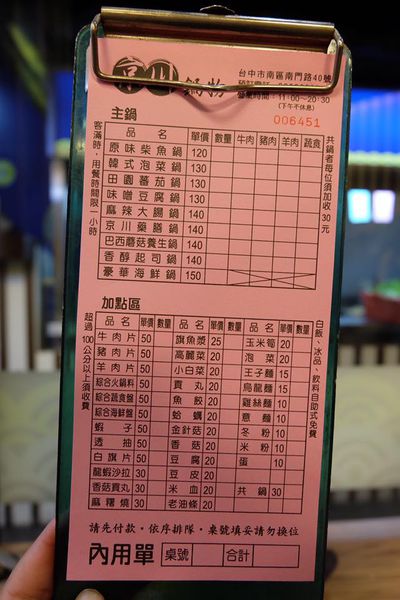 京川 鍋物
台中市南區南門路40號
營業時間：11:00～20:30
(下午不休息)
006451
主鍋
品名 單價 數量 牛肉 豬肉 羊肉 蔬食
原味柴魚鍋 120
韓式泡菜鍋 130
田園蕃茄鍋 130
味噌豆腐鍋 130
麻辣大腸鍋 140
京川藥膳鍋 140
巴西蘑菇養生鍋 140
香醇起司鍋 140
豪華海鮮鍋 150
客滿時，用餐時間限一小時
共鍋者每位須加收30元
加點區
品名 單價 數量 品名 單價 數量 品名 單價 數量
牛肉片 50 旗魚漿 25 玉米筍 20
豬肉片 50 高麗菜 20 泡菜 20
羊肉片 50 小白菜 20 王子麵 15
綜合火鍋料 50 貢丸 20 烏龍麵 15
綜合蔬食盤 50 魚餃 20 雞絲麵 10
綜合海鮮盤 50 蛤蠣 20 意麵 10
蝦子 50 金針菇 20 冬粉 10
透抽 50 香菇 20 米粉 10
白旗片 50 豆腐 20 蛋 10
龍蝦沙拉 30 豆皮 20
香菇貢丸 30 米血 20 共鍋 30
麻糬燒 30 老油條 20
超過100公分以上須收費
白飯、冰品、飲料自助式免費
請先付款，依序排隊，桌號填妥請勿換位
內用單 桌號 合計